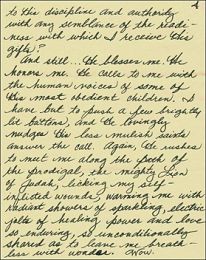 to the discipline and authority
with any semblance of the readi-
ness with which I receive His
gifts?
And still... He blesses me. He
honors me. He calls to me with
the human voices of some of
His most obedient children. I
have but to push a few brightly
lit buttons, and He lovingly
nudges His less mulish saints
answer the call. Again, He rushes
to meet me along the path of
the prodigal, the mighty Lion
of Judah, licking my self-
inflicted wounds, warming me with
radiant showers of sparkling, electric
jolts of healing power and love
so enduring, so unconditionally
shared as to leave me breath-
less with wonder. Wow.